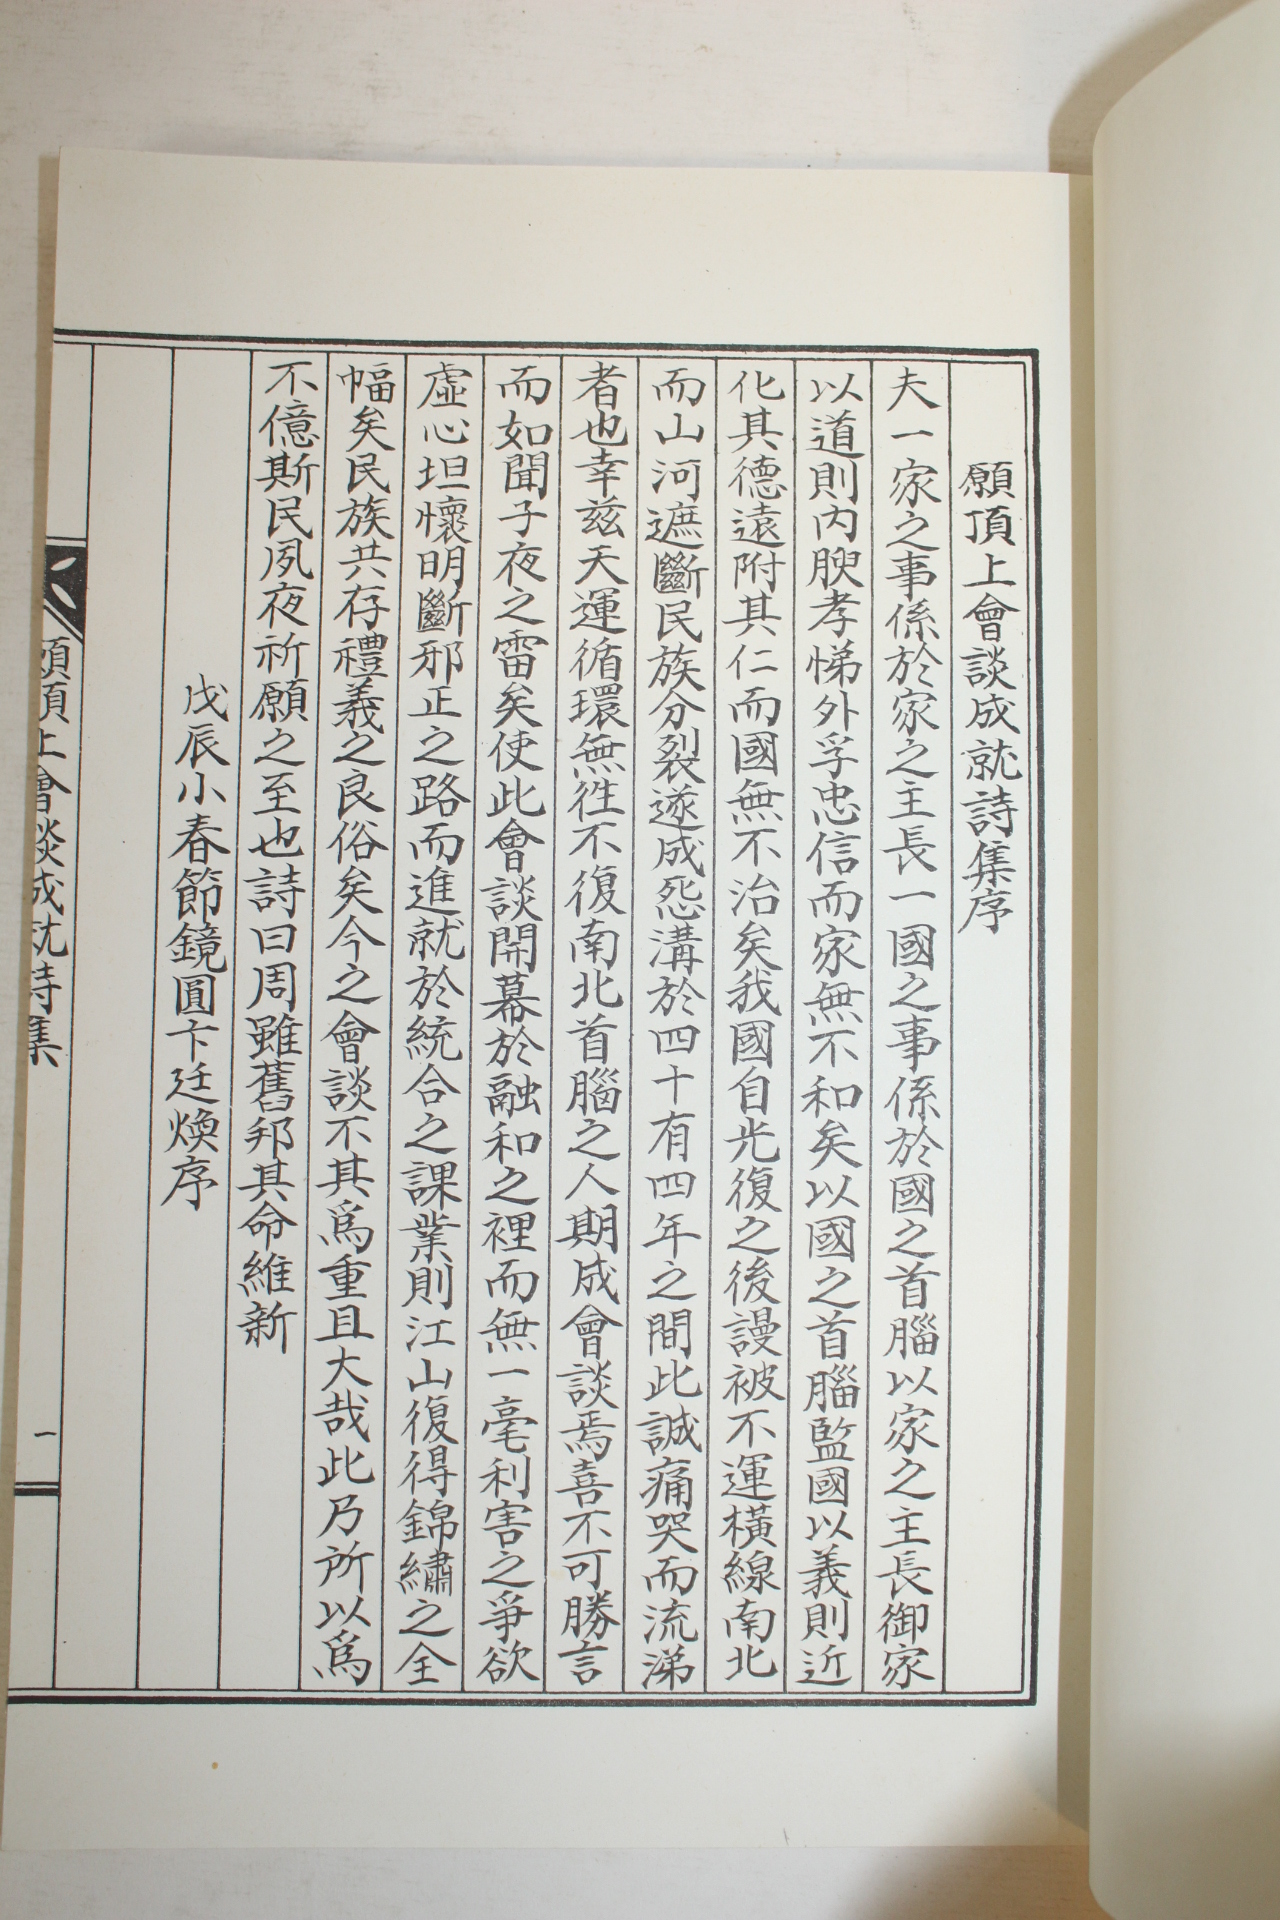 願頂上會談成就詩集序
夫一家之事係於家之主長一國之事係於國之首腦以家之主長御家
以道則内腴孝悌外孚忠信而家無不和矣以國之首腦監國以義則近
化其德遠附其仁而國無不治矣我國自光復之後謾被不運橫線南北
而山河遮斷民族分裂遂成怨溝於四十有四年之間此誠痛哭而流涕
者也幸玆天運循環無徃不復南北首腦之人期成會談焉喜不可勝言
而如聞子夜之雷矣使此會談開幕於融和之裡而無一毫利害之爭欲
虛心坦懷明斷邪正之路而進就於統合之課業則江山復得錦繡之全
幅矣民族共存禮義之良俗矣今之會談不其爲重且大哉此乃所以爲
不億斯民夙夜祈願之至也詩曰周雖舊邦其命維新
戊辰小春節鏡圓卞廷煥序
願頂上會談成就詩集
一